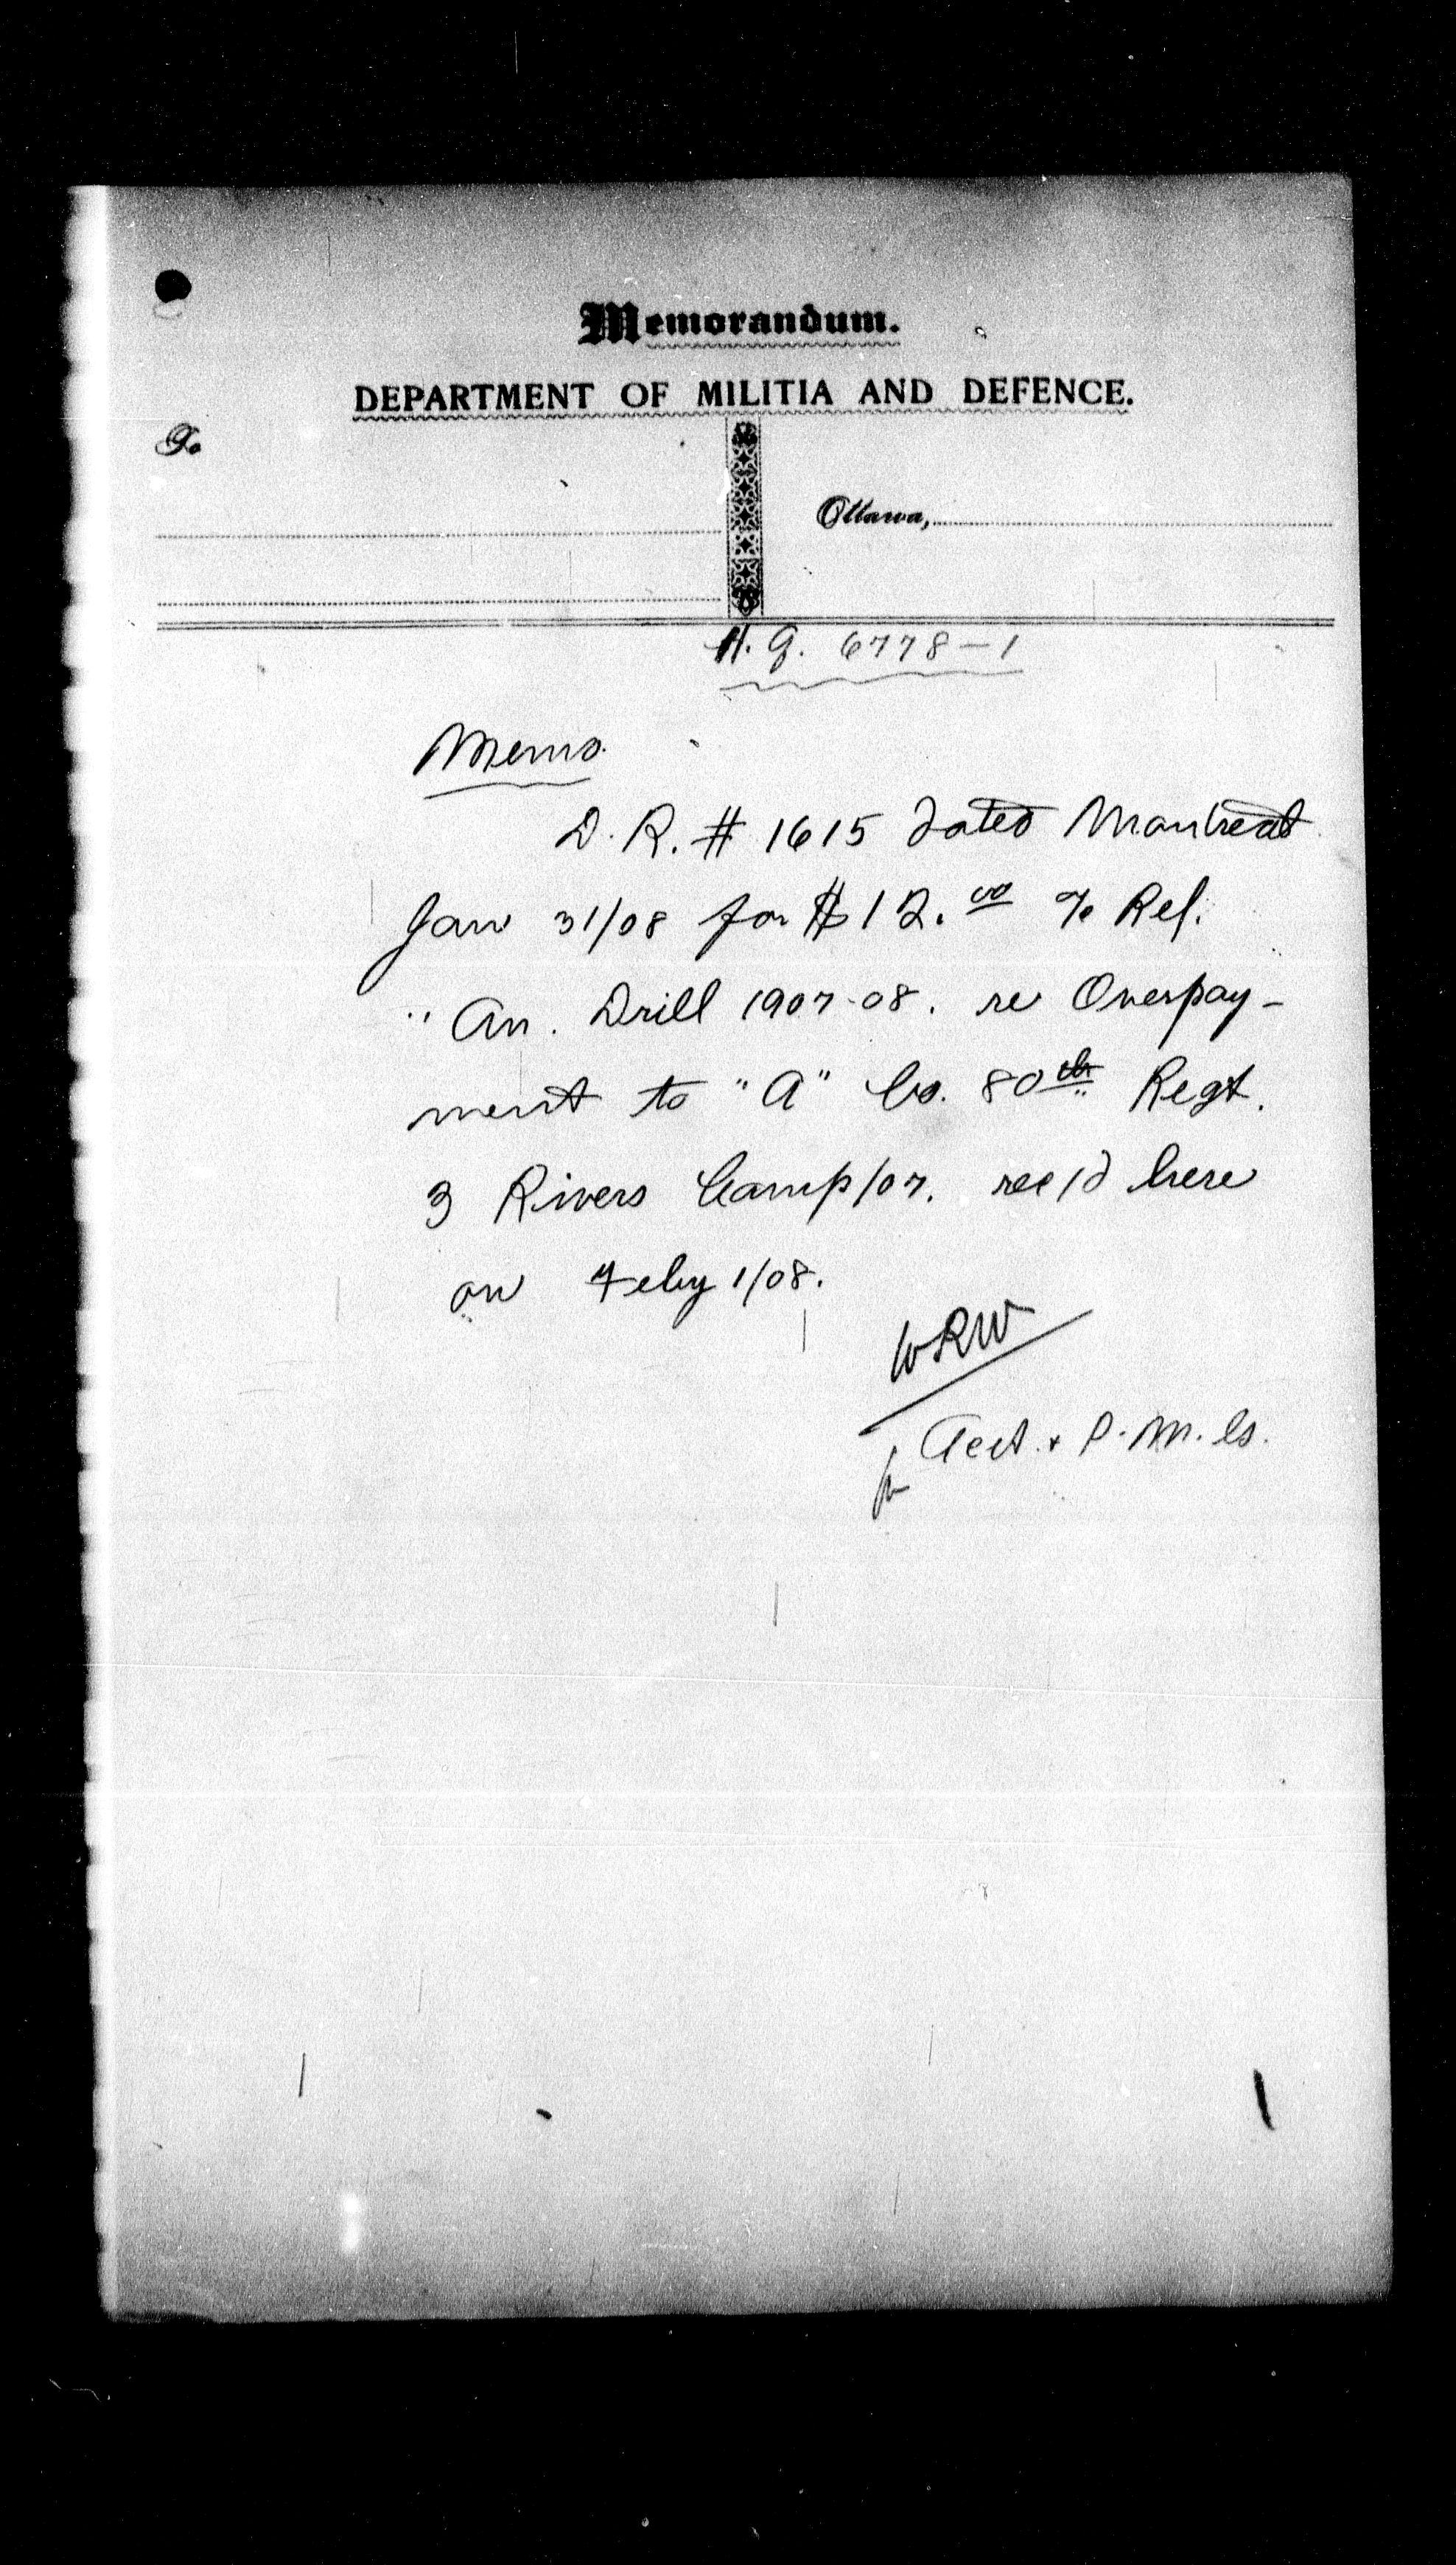 Memorandum.
DEPARTMENT OF MILITIA AND DEFENCE.
To
Ottawa,
H.Q. 6778-1
Memo.
D.R. # 1615 dated Montreal
Jan 31/08 for $12.00 % Ref.
" An. Drill 1907-08. re Overpay-
ment to "A" Co. 80th Regt.
3 Rivers Camp/07. rec'd here
on Feby 1/08.
WRW
for Acct. & P.M. Gs.